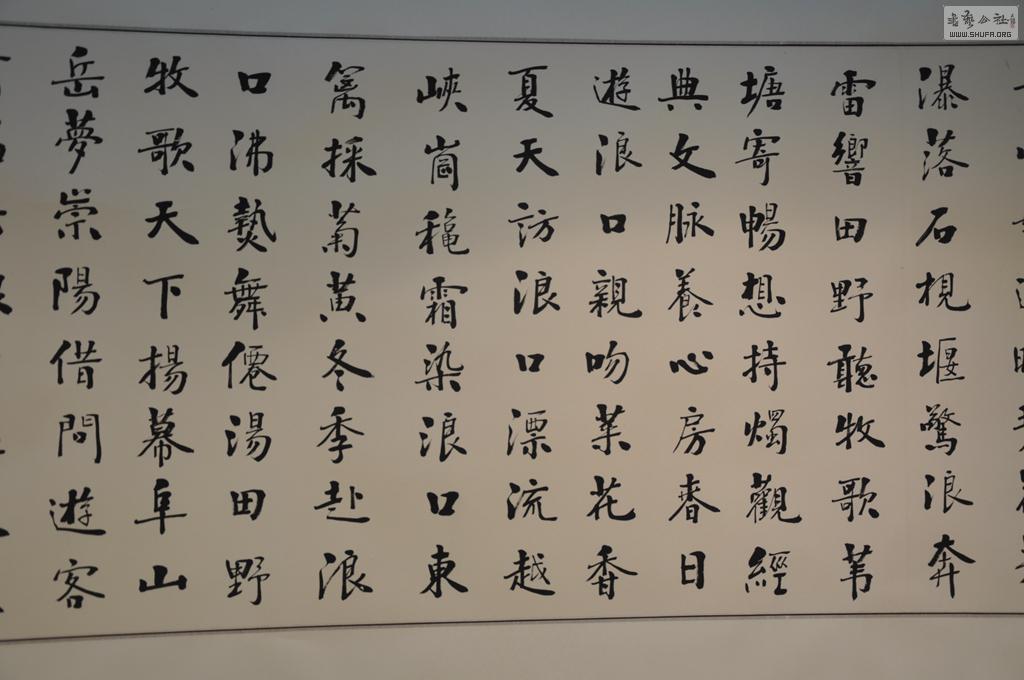 瀑落石梘堰驚浪奔
雷響田野聽牧歌苇
塘寄暢想持燭觀經
典文脉養心房春日
遊浪口親吻菜花香
夏天訪浪口漂流越
峽崗穐霜染浪口東
篱採菊黄冬季赴浪
口沸爇舞僊湯田野
牧歌天下揚幕阜山
岳夢崇陽借問遊客
書藝公社
WWW.SHUFA.ORG